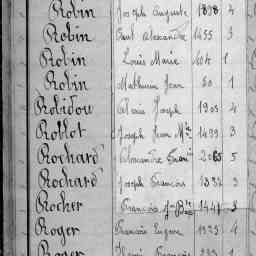 Robin Joseph Auguste 1898 4
Robin Paul Alexandre 1455 3
Robin Louis Marie 404 1
Robin Mathurin Jean 50 1
Robidou Alexis Joseph 1904 4
Rollot Joseph Jean Mie 1499 3
Rochard Alexandre 2065 5
Rochard Joseph François 1332 3
Rocher François Jn Bte 1441 3
Roger François Eugène 1925 4
Roger Henri François 1